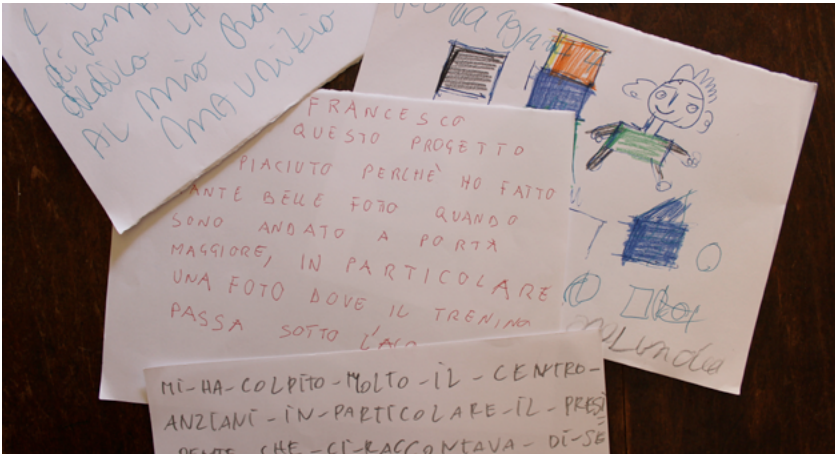 DI ROMA
DEDICO LA
AL MIO
MAURIZIO
FRANCESCO
QUESTO PROGETTO
PIACIUTO PERCHÈ HO FATTO
ANTE BELLE FOTO QUANDO
SONO ANDATO A PORTA
MAGGIORE, IN PARTICOLARE
UNA FOTO DOVE IL TRENINO
PASSA SOTTO L'
MI-HA-COLPITO-MOLTO-IL-CENTRO-
ANZIANI-IN-PARTICOLARE-IL-PRESI
DENTE CHE-CI-RACCONTAVA-DI-SE